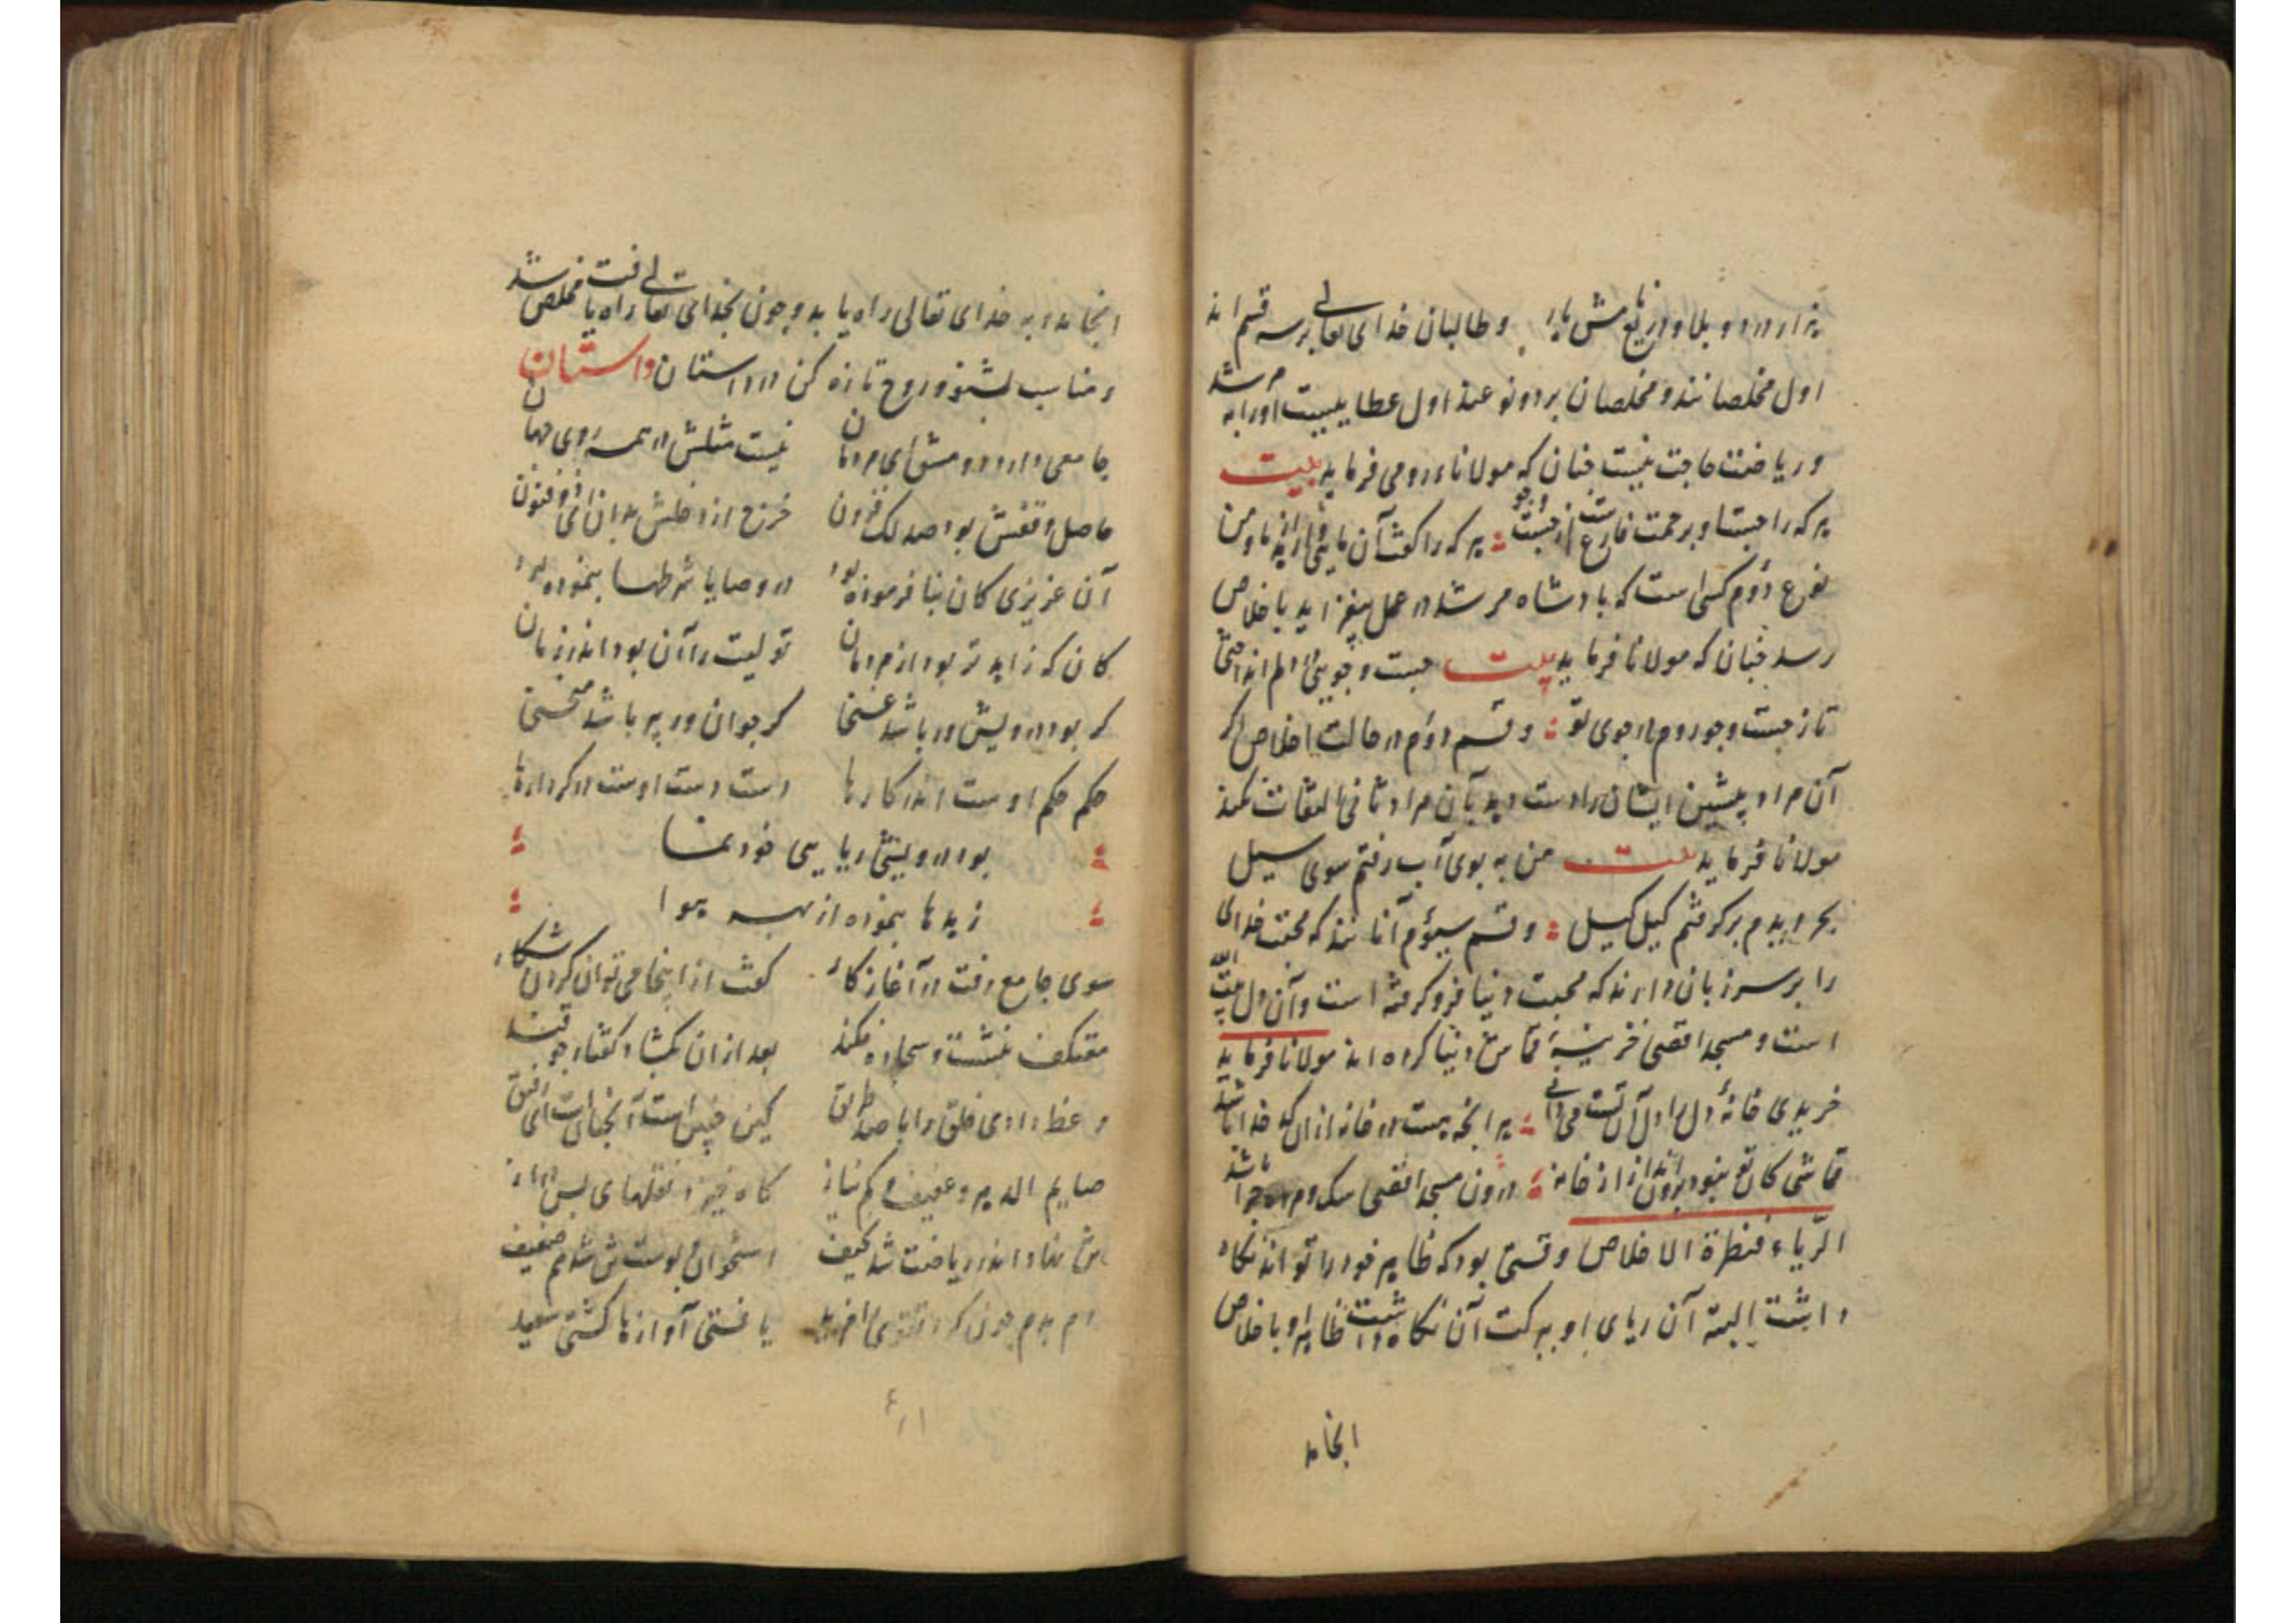 هزار درد و بلا و در نعیمش یابد و طالبان خدای تعالی بر سه قسم اند
اول مخلصانند و مخلصان بر دو نوعند اول عطاییست او را به مرشد
و ریاضت حاجت نیست چنان که مولاناء رومی فرماید بیت
هر که را جست او برحمت فارغست از جست و جو هر که را گفت آن مایی
نوع دؤم کسی است که بارشاد مرشد در عمل بیفزاید باخلاص
رسد چنان که مولانا فرماید بیت جست و جویی در دلم انداختی
تا ز جست و جو روم در جوی تو و قسم دؤم در حالت اخلاص اگر
آن مراد پیشین ایشان را دست دهد بآن مراد ثانی التفات نکنند
مولانا فرماید بیت من به بوی آب رفتم سوی سیل
بحر دیدم بر گرفتم کیل کیل و قسم سیؤم آنانند که محبت خدای
را بر سر زبان دارند که محبت دنیا فرو گرفته است و آن دل بیت الله
است و مسجد اقصی خزینهٔ قماش دنیا کرده اند مولانا فرماید
خریدی خانهٔ دل را دل آن تست می دانی هر انچه هست در خانه از آن کدخدا باشد
قماشی کان تو نبود برون انداز از خانه درون مسجد اقصی سک مرده چرا باشد
الریاء قنطرة الاخلاص وقتی بود که ظاهر خود را تواند نگاه
داشت البته آن ریای او ببرکت آن نگاه داشت ظاهر او باخلاص
انجامد
انجامد و به خدای تعالی راه یابد و چون بخدای تعالی راه یافت مخلص شد
و مناسب بشنو و روح تازه کن در داستان داستان
جامعی دارد دمشق ای مردمان نیست مثلش در همه روی جهان
حاصل وقفش بود صد لک فزون خرج از دخلش بدان ای ذو فنون
آن عزیزی کان بنا فرموده بود در وصایا شرطها بنموده بود
کان که زاهد تر بود از مردمان تولیت را آن بود اندر زمان
گر بود درویش ور باشد غنی گر جوان ور پیر باشد منحنی
حکم حکم اوست اندر کارها دست دست اوست در کردارها
بود درویشی ریایی خودنما
زهدها بنموده از بهر هوا
سوی جامع رفت در آغاز کار گفت از اینجا می توان کردن شکار
معتکف بنشست و سجاده فکند بعد از ان بگشاد گفتار چو قند
وعظ دادی خلق را با صد طریق کین چنین است آنچنان است ای رفیق
صایم الدهر و عفیف و کم نیاز گاه خیز از نقلهای بس دراز
تن نهاد اندر ریاضت شد نحیف استخوان و پوست شد تن هم ضعیف
دم بدم چون کرد تقوی را مزید یافتی آوازها گشتی سعید